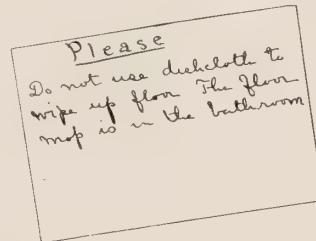 Please
Do not use dishcloth to
wipe up floor The floor
mop is in the bathroom